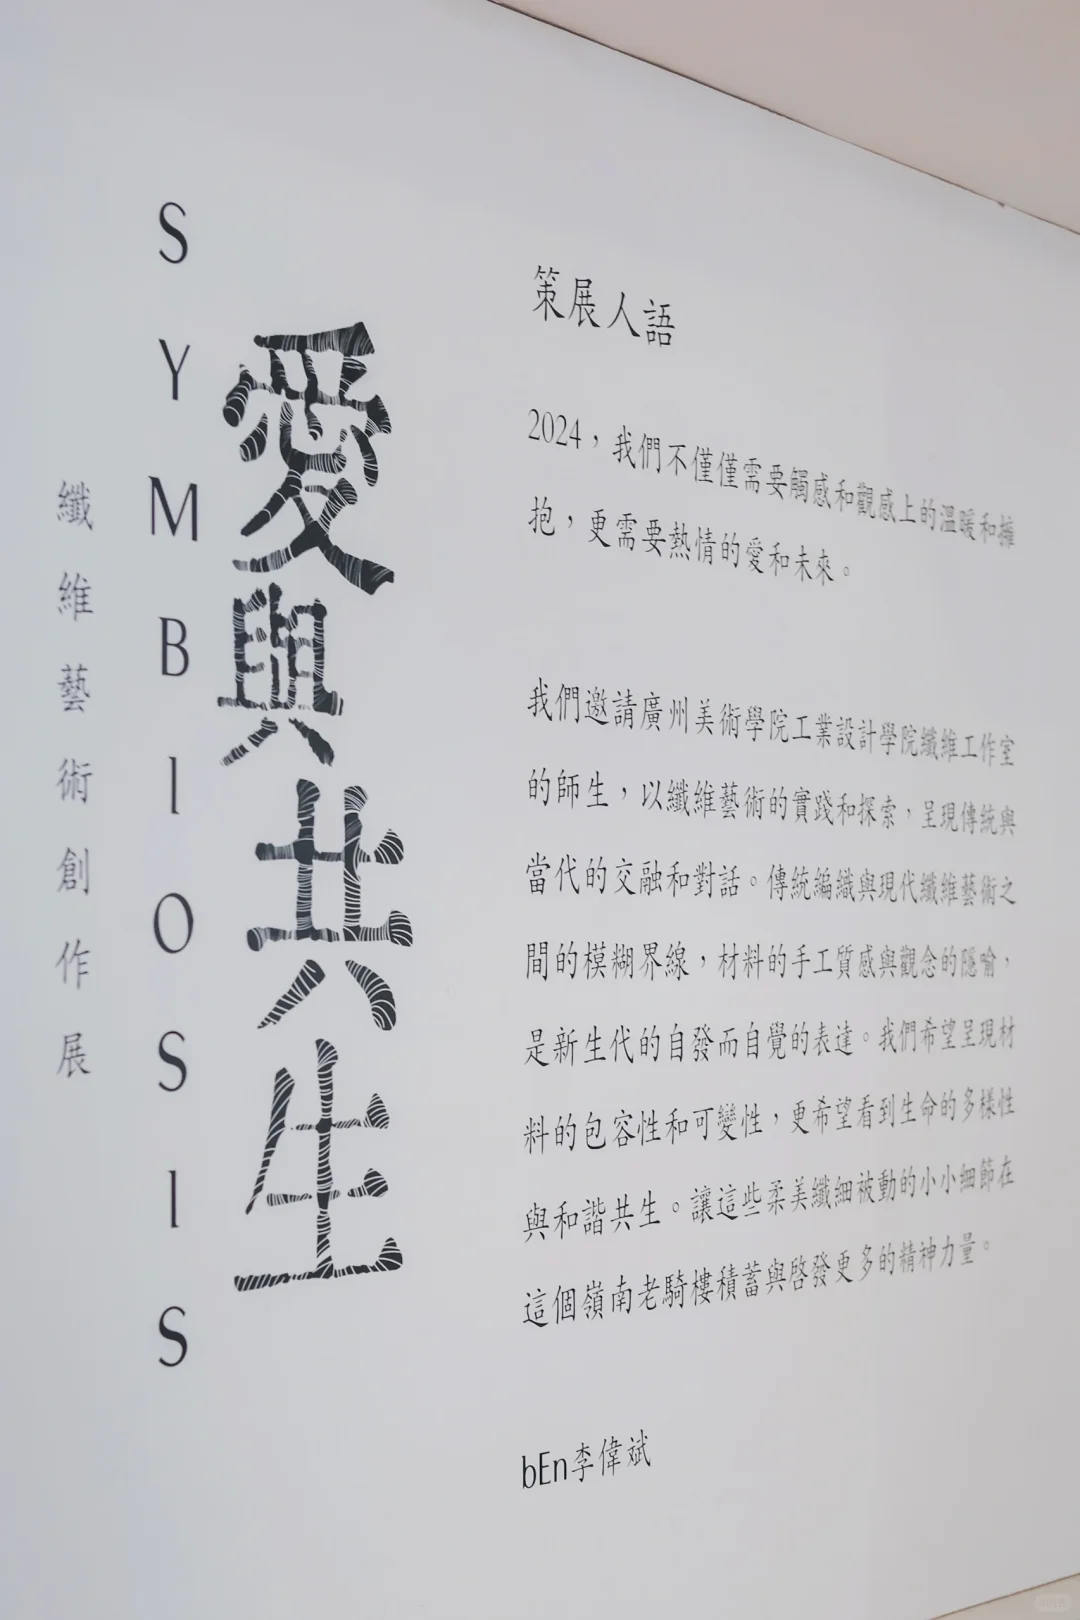 纖維藝術創作展
SYMBIOSIS
愛與共生
策展人語
2024，我們不僅僅需要觸感和觀感上的溫暖和擁
抱，更需要熱情的愛和未來。
我們邀請廣州美術學院工業設計學院纖維工作室
的師生，以纖維藝術的實踐和探索，呈現傳統與
當代的交融和對話。傳統編織與現代纖維藝術之
間的模糊界線，材料的手工質感與觀念的隱喻，
是新生代的自發而自覺的表達。我們希望呈現材
料的包容性和可變性，更希望看到生命的多樣性
與和諧共生。讓這些柔美纖細被動的小小細節在
這個嶺南老騎樓積蓄與啓發更多的精神力量。
bEn李偉斌